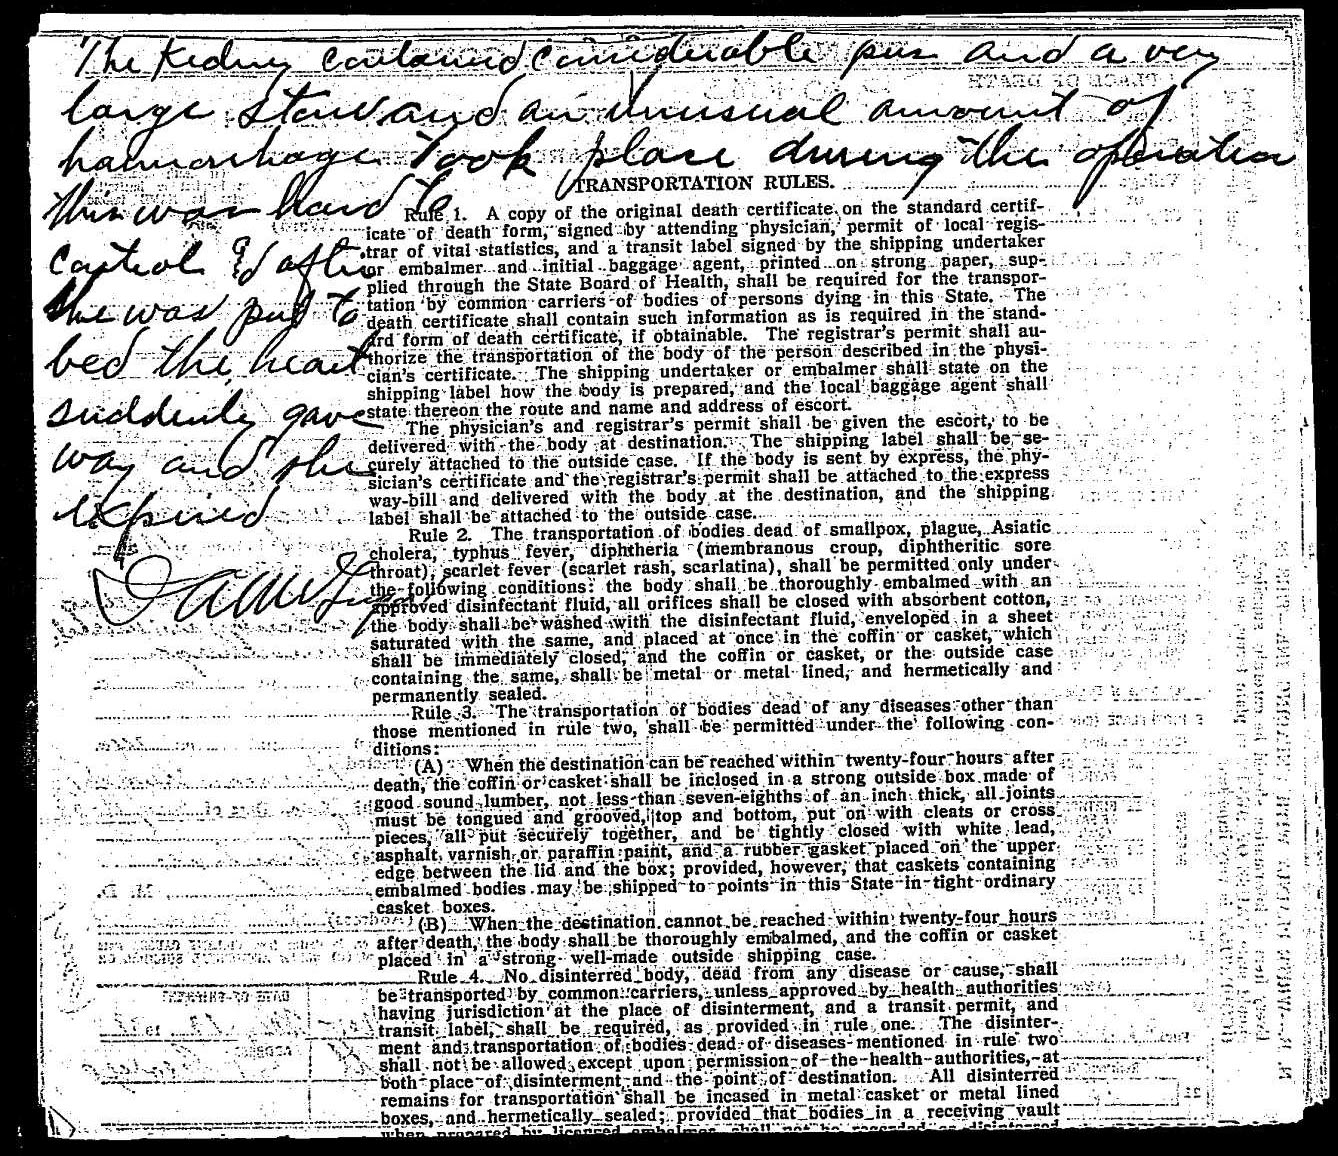 The Kidney contained considerable pus and a very
large stone and an unusual amount of
haemorhage Took place during the operation
This was hard to
control & after
she was put to
bed the heart
suddenly gave
way and she
expired
TRANSPORTATION RULES.
Rule 1. A copy of the original death certificate on the standard certif-
icate of death form, signed by attending physician, permit of local regis-
trar of vital statistics, and a transit label signed by the shipping undertaker
or embalmer and initial baggage agent, printed on strong paper, sup-
plied through the State Board of Health, shall be required for the transpor-
tation by common carriers of bodies of persons dying in this State. The
death certificate shall contain such information as is required in the stand-
ard form of death certificate, if obtainable. The registrar's permit shall au-
thorize the transportation of the body of the person described in the physi-
cian's certificate. The shipping undertaker or embalmer shall state on the
shipping label how the body is prepared, and the local baggage agent shall
state thereon the route and name and address of escort.
The physician's and registrar's permit shall be given the escort, to be
delivered with the body at destination. The shipping label shall be se-
curely attached to the outside case. If the body is sent by express, the phy-
sician's certificate and the registrar's permit shall be attached to the express
way-bill and delivered with the body at the destination, and the shipping
label shall be attached to the outside case.
Rule 2. The transportation of bodies dead of smallpox, plague, Asiatic
cholera, typhus fever, diphtheria (membranous croup, diphtheritic sore
throat), scarlet fever (scarlet rash, scarlatina), shall be permitted only under
the following conditions: the body shall be thoroughly embalmed with an
approved disinfectant fluid, all orifices shall be closed with absorbent cotton,
the body shall be washed with the disinfectant fluid, enveloped in a sheet
saturated with the same, and placed at once in the coffin or casket, which
shall be immediately closed, and the coffin or casket, or the outside case
containing the same, shall be metal or metal lined, and hermetically and
permanently sealed.
Rule 3. The transportation of bodies dead of any diseases other than
those mentioned in rule two, shall be permitted under the following con-
ditions:
(A) When the destination can be reached within twenty-four hours after
death, the coffin or casket shall be inclosed in a strong outside box made of
good sound lumber, not less than seven-eighths of an inch thick, all joints
must be tongued and grooved, top and bottom, put on with cleats or cross
pieces, all put securely together, and be tightly closed with white lead,
asphalt varnish or paraffin paint, and a rubber gasket placed on the upper
edge between the lid and the box; provided, however, that caskets containing
embalmed bodies may be shipped to points in this State in tight ordinary
casket boxes.
(B) When the destination cannot be reached within twenty-four hours
after death, the body shall be thoroughly embalmed, and the coffin or casket
placed in a strong well-made outside shipping case.
Rule 4. No disinterred body, dead from any disease or cause, shall
be transported by common carriers, unless approved by health authorities
having jurisdiction at the place of disinterment, and a transit permit, and
transit label, shall be required, as provided in rule one. The disinter-
ment and transportation of bodies dead of diseases mentioned in rule two
shall not be allowed except upon permission of the health authorities, at
both place of disinterment and the point of destination. All disinterred
remains for transportation shall be incased in metal casket or metal lined
boxes, and hermetically sealed; provided that bodies in a receiving vault
when prepared by licensed embalmer shall not be regarded as disinterred